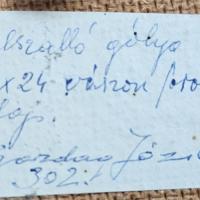 lszálló gólya
x24 vászon
olaj.
Gazdag Józs
302.